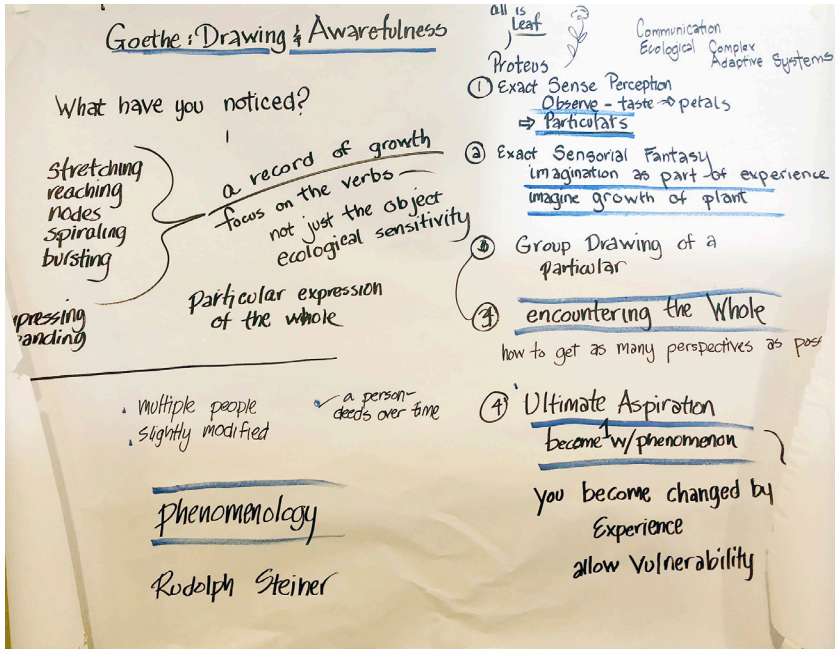 Goethe : Drawing & Awarefulness
What have you noticed?
stretching
reaching
nodes
spiraling
bursting
pressing
anding
a record of growth
focus on the verbs
not just the object
ecological sensitivity
particular expression
of the whole
multiple people
slightly modified
a person-
deeds over time
phenomenology
Rudolph Steiner
all is
Leaf
Proteus
Communication
Ecological Complex
Adaptive Systems
1 Exact Sense Perception
Observe - taste → petals
⇒ Particulars
2 Exact Sensorial Fantasy
imagination as part of experience
imagine growth of plant
Group Drawing of a
particular
encountering the Whole
how to get as many perspectives as poss
4 Ultimate Aspiration
become 1 w/phenomenon
you become changed by
Experience
allow Vulnerability